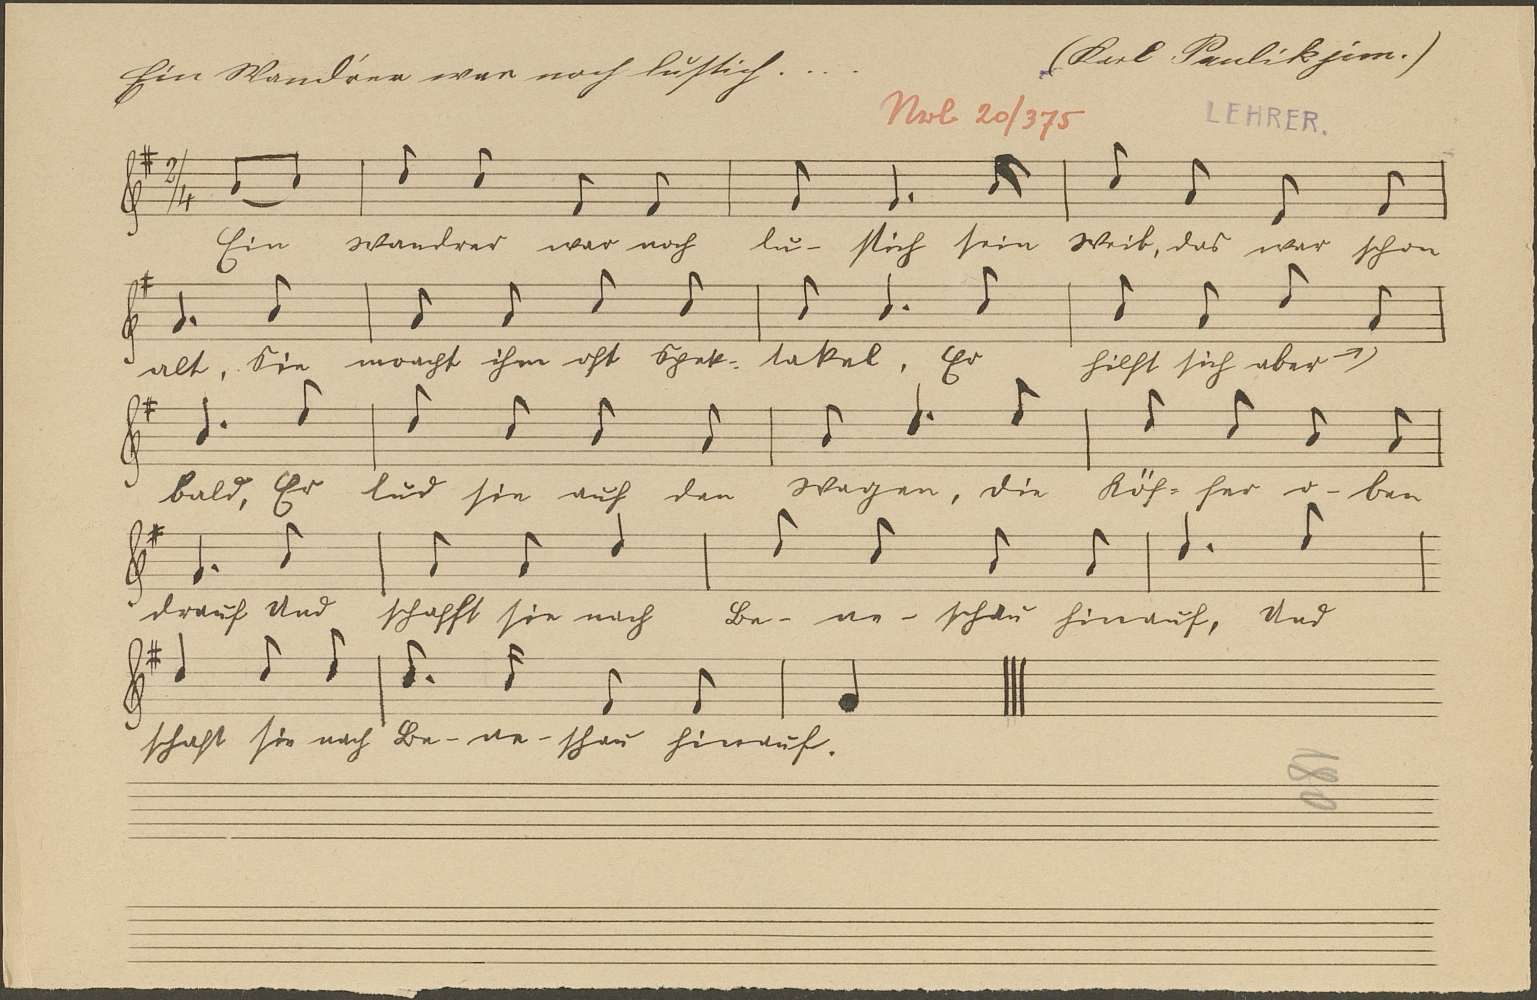 Ein Wandrer war noch lustich. . . .
(Karl Paulik jun.)
Nrb 20/375
LEHRER.
2/4
Ein Wandrer war noch lu- stich sein Weib, das war schon
alt, Sie macht ihm oft Spek-: takel, Er hilft sich aber
bald, Er lud sie auf den Wagen, die Köf= fer o- ben
drauf Und schafft sie nach Be- ne- schau hinauf, Und
schaft sie nach Be- ne- schau hinauf.
180